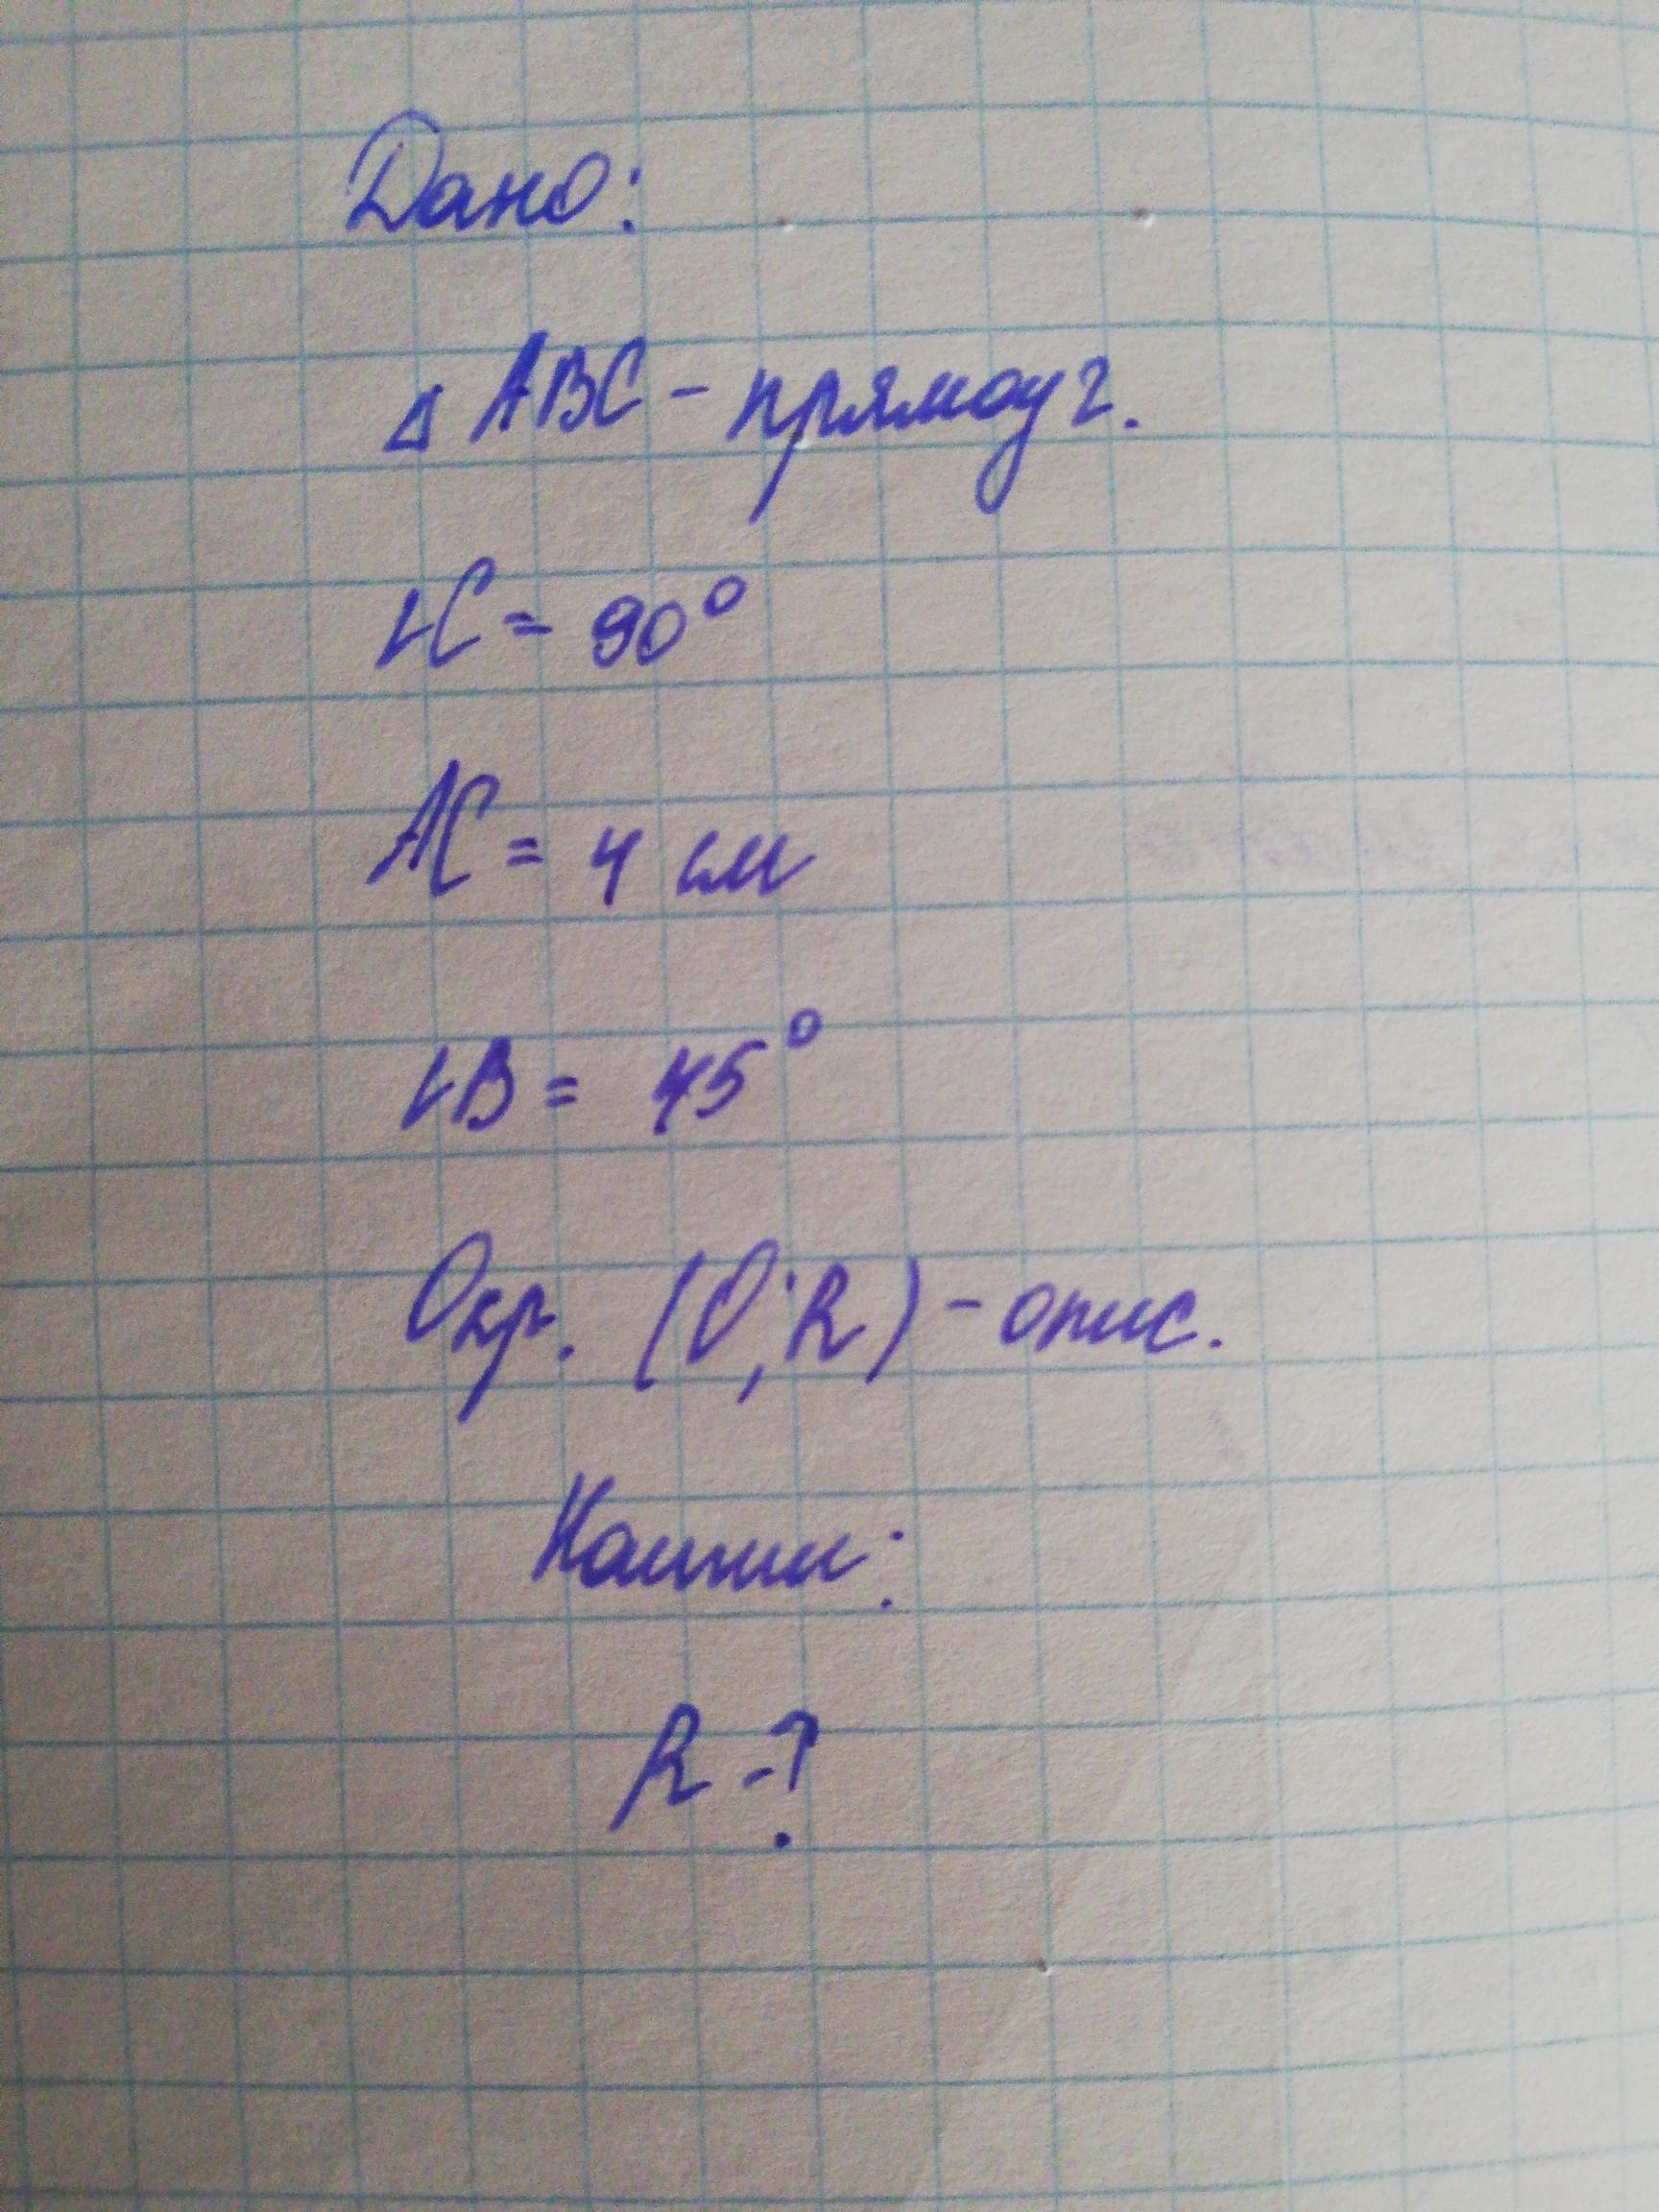 Дано:
△ ABC - прямоуг.
∠C = 90°
AC = 4 см
∠B = 45°
Окр. (O; R) - опис.
Найти:
R - ?